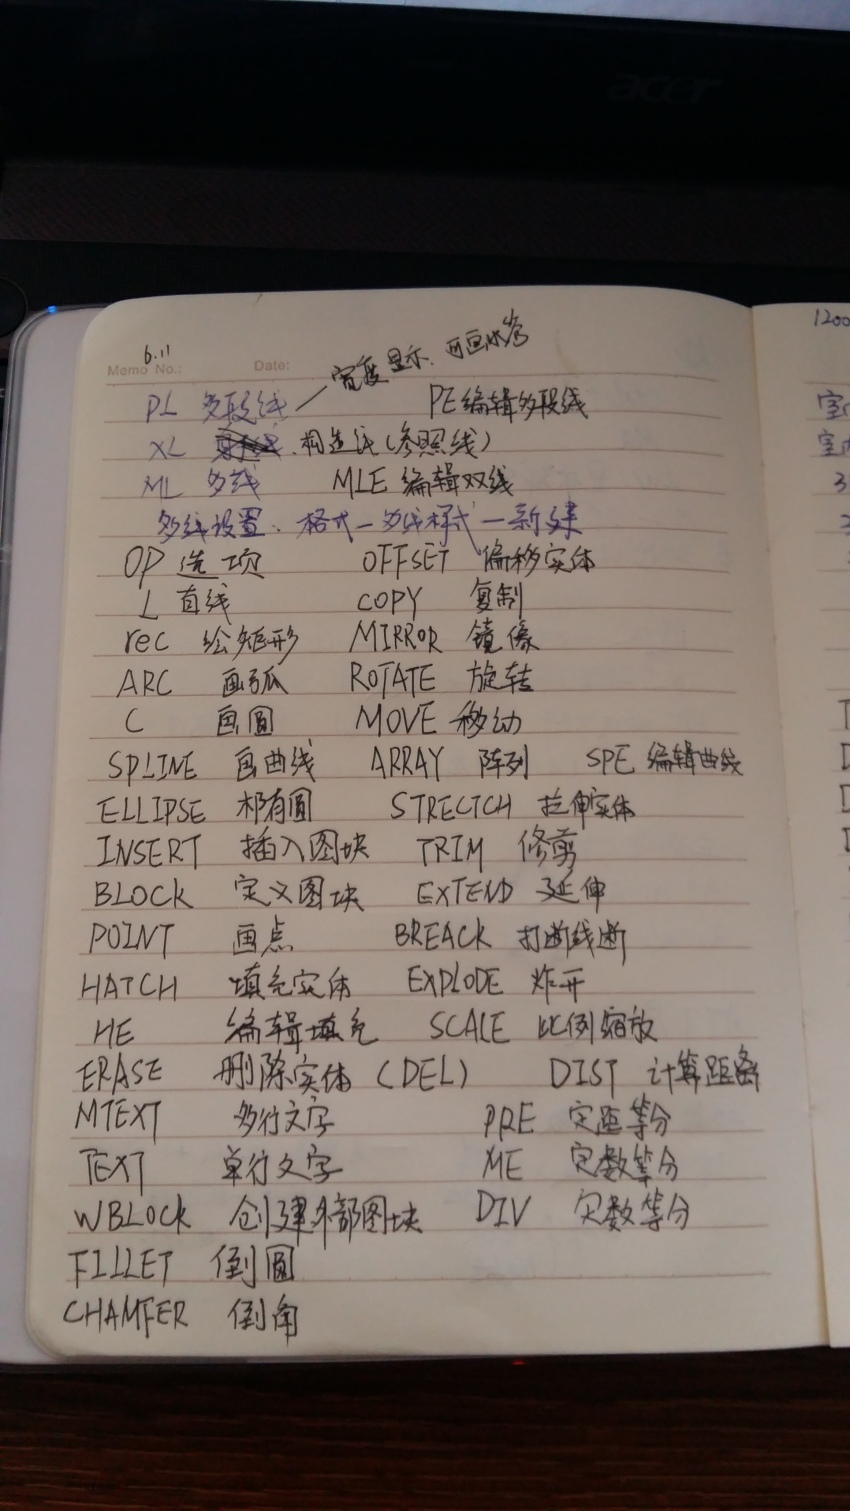 acer
1200
6.11
Memo No.: Date:
宽度显示.可画
PL 多段线 PE编辑多段线
XL 构造线(参照线)
ML 多线 MLE 编辑双线
多线设置.格式-多线样式-新建
OP 选项 OFFSET 偏移实体
L 直线 COPY 复制
rec 绘矩形 MIRROR 镜像
ARC 画弧 ROTATE 旋转
C 画圆 MOVE 移动
SPLINE 画曲线 ARRAY 阵列 SPE 编辑曲线
ELLIPSE 圆 STRECTCH 拉伸实体
INSERT 插入图块 TRIM 修剪
BLOCK 定义图块 EXTEND 延伸
POINT 画点 BREACK 打断线断
HATCH 填充实体 EXPLODE 炸开
HE 编辑填充 SCALE 比例缩放
ERASE 删除实体(DEL) DIST 计算距离
MTEXT 多行文字 PRE 定距等分
TEXT 单行文字 ME 定数等分
WBLOCK 创建外部图块 DIV 定数等分
FILLET 倒圆
CHAMFER 倒角